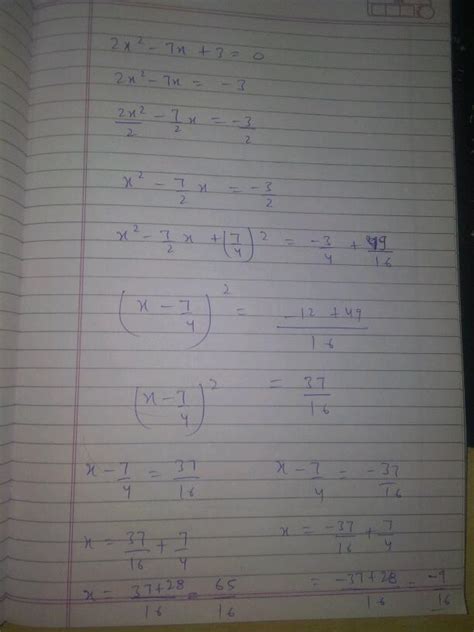 2x² - 7x + 3 = 0
2x² - 7x = -3
2x²/2 - 7/2 x = -3/2
x² - 7/2 x = -3/2
x² - 7/2 x + (7/4)² = -3/4 + 49/16
(x - 7/4)² = -12 + 49/16
(x - 7/4)² = 37/16
x - 7/4 = 37/16 x - 7/4 = -37/16
x = 37/16 + 7/4 x = -37/16 + 7/4
x = 37+28/16 = 65/16 = -37+28/16 = -9/16